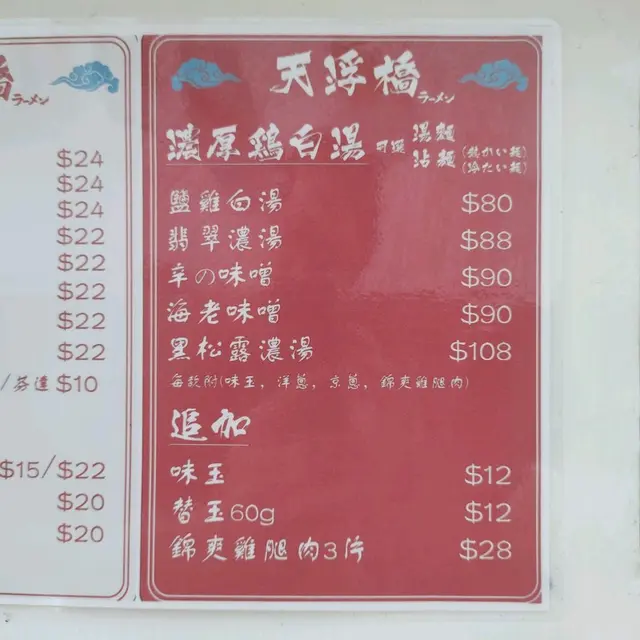 橋
ラーメン
$24
$24
$24
$22
$22
$22
$22
$22
/芬達 $10
$15/$22
$20
$20
天浮橋
ラーメン
濃厚鶏白湯 可選 湯麵 (熱かい麺)
沾麵 (冷たい麺)
鹽雞白湯 $80
翡翠濃湯 $88
辛の味噌 $90
海老味噌 $90
黑松露濃湯 $108
每款附(味玉, 洋蔥, 京蔥, 錦爽雞腿肉)
追加
味玉 $12
替玉60g $12
錦爽雞腿肉3片 $28